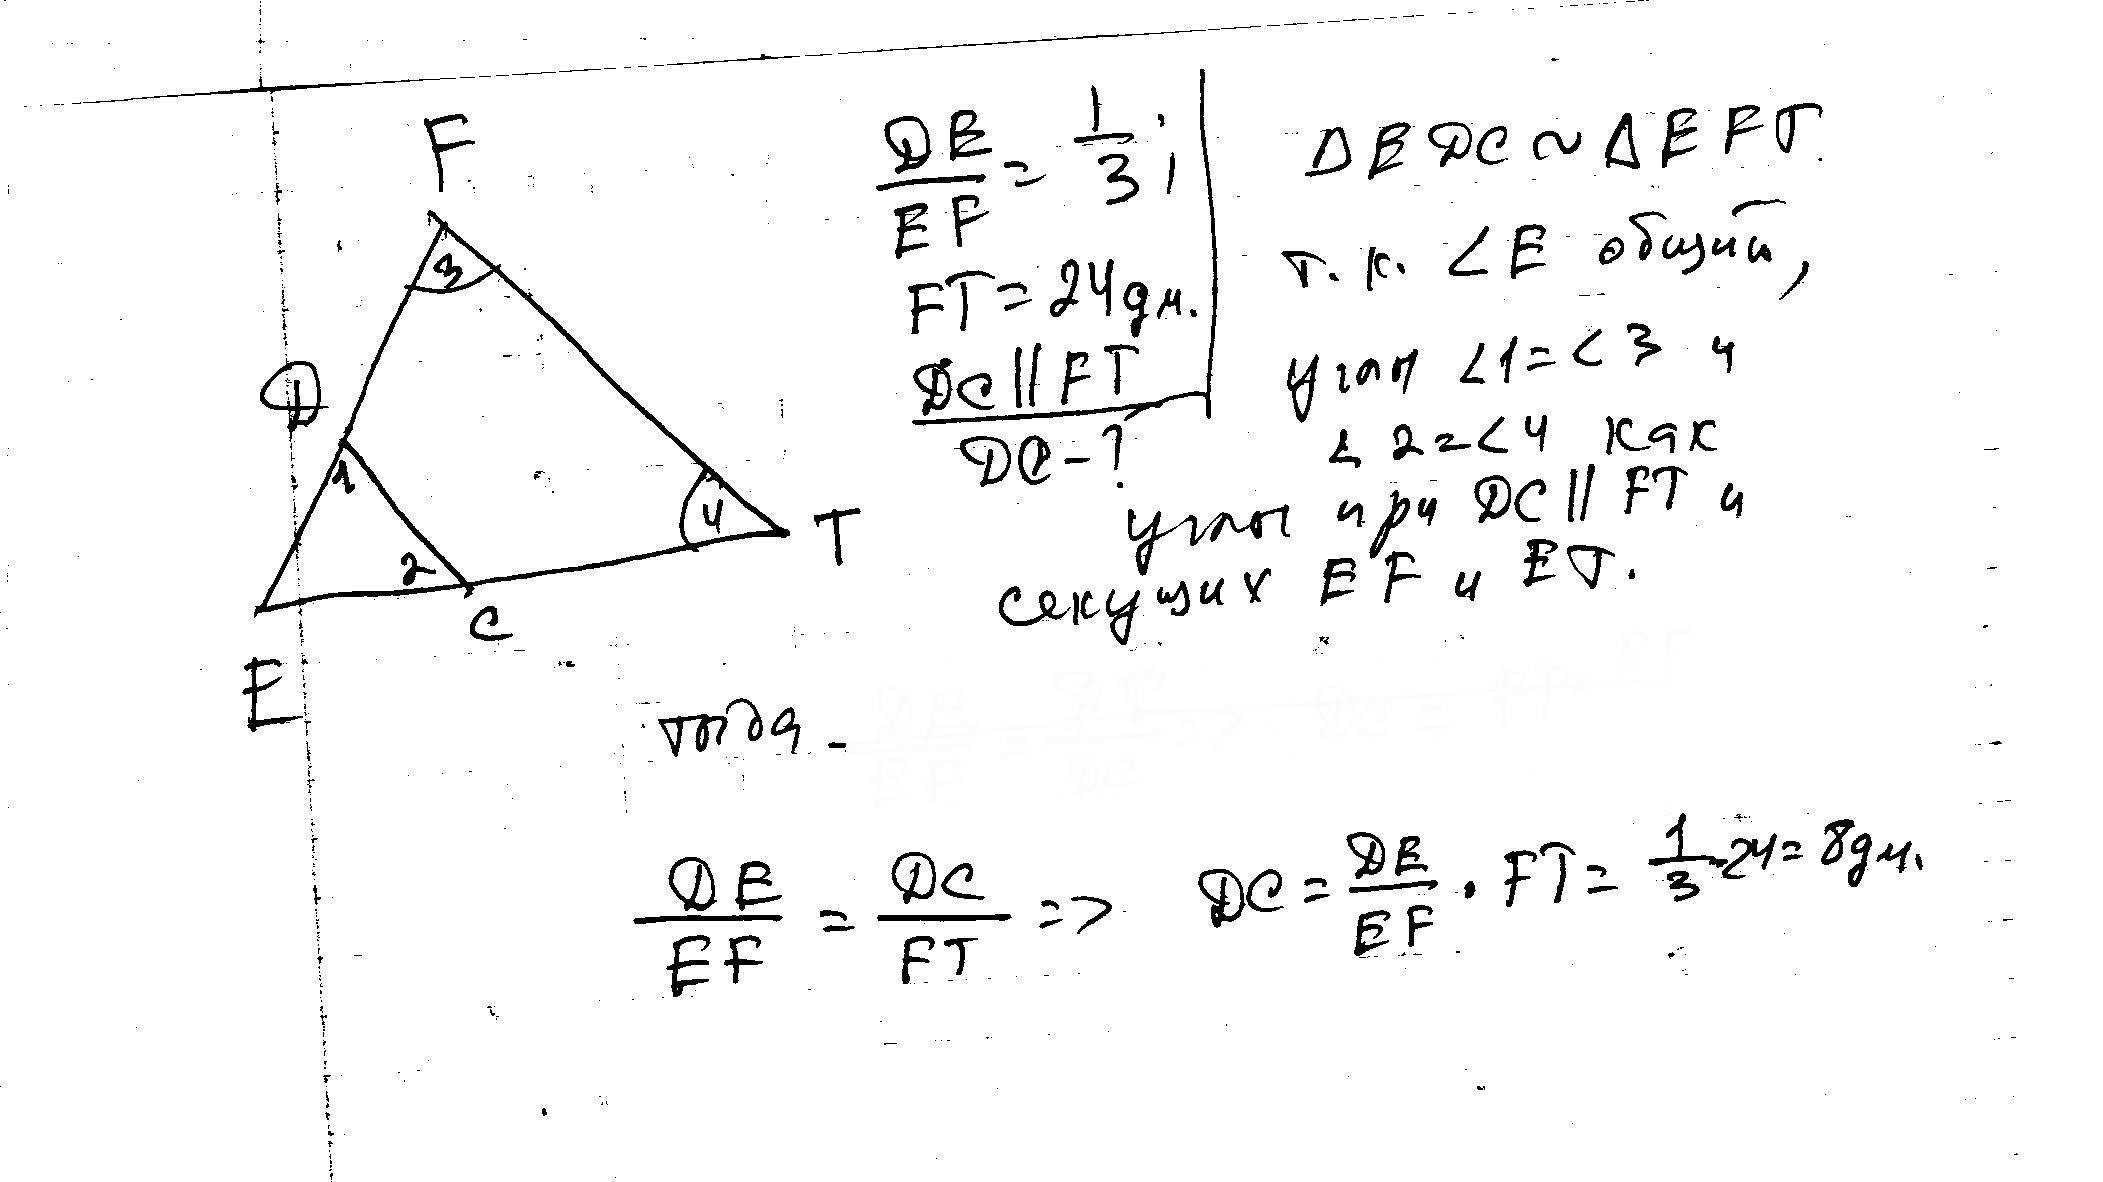 F
D
E
C
T
1
2
3
4
DE/EF = 1/3;
FT = 24 дм.
DC || FT
DC - ?
ΔEDC ~ ΔEFT.
т.к. ∠E общий,
углы ∠1 = ∠3 и
∠2 = ∠4 как
углы при DC || FT и
секущих EF и ET.
тогда -
DE/EF = DC/FT => DC = DE/EF · FT = 1/3 · 24 = 8 дм.